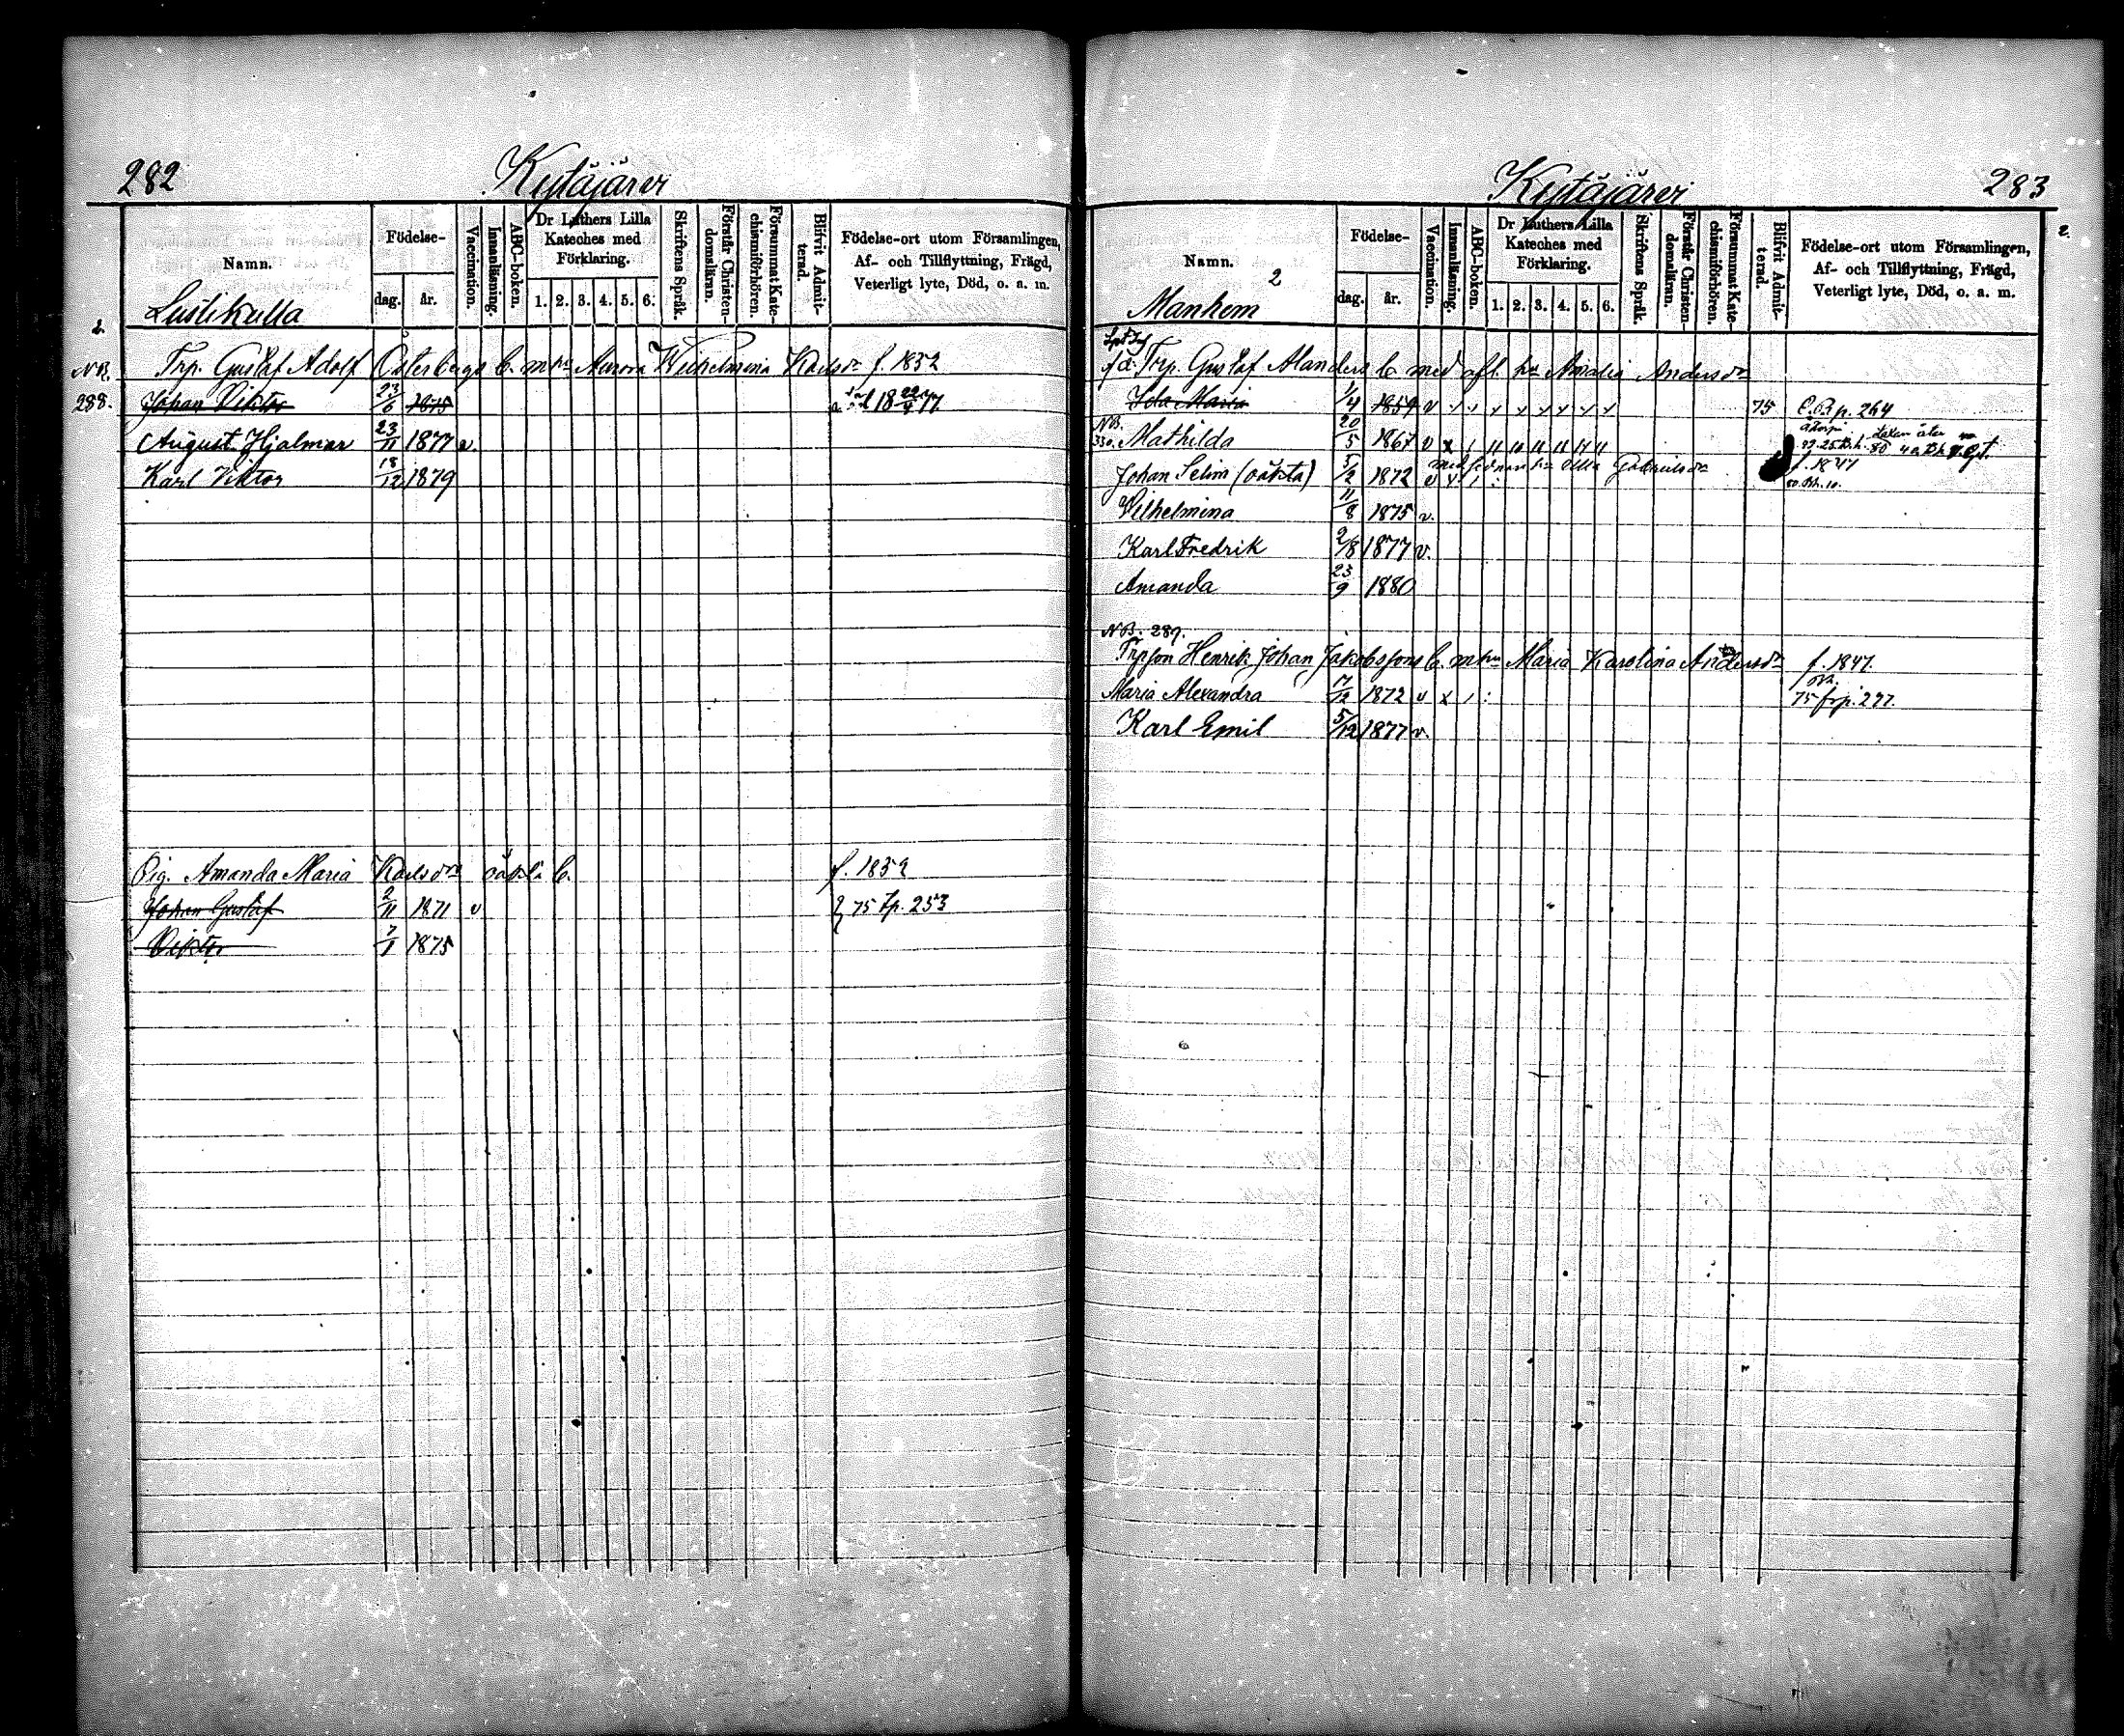 282
Kytäjärvi
Namn.
Födelse-
dag.
år.
Vaccination.
Innanläsning.
ABC-boken.
Dr Luthers Lilla
Kateches med
Förklaring.
1. 2. 3. 4. 5. 6.
Skriftens Språk.
Förstår Christen-
domsläran.
Försummat Kate-
chismiförhören.
Blifvit Admit-
terad.
Födelse-ort utom Församlingen,
Af- och Tillflyttning, Frägd,
Veterligt lyte, Död, o. a. m.
Lustikulla
2.
NB. Trp. Gustaf Adolf Österbergs b. m hu Aurora Wilhelmina Karlsdr f. 1852
288. Johan Viktor 23/6 1875 18 22/4 77.
August Hjalmar 23/11 1877 v.
Karl Viktor 18/12 1879
Pig. Amanda Maria Karlsdr oäkta b. f. 1852
Johan Gustaf 2/11 1871 v 75 t.p. 253
Viktor 7/1 1875
283
Kytäjärvi
Namn.
Födelse-
dag.
år.
Vaccination.
Innanläsning.
ABC-boken.
Dr Luthers Lilla
Kateches med
Förklaring.
1. 2. 3. 4. 5. 6.
Skriftens Språk.
Förstår Christen-
domsläran.
Försummat Kate-
chismiförhören.
Blifvit Admit-
terad.
Födelse-ort utom Församlingen,
Af- och Tillflyttning, Frägd,
Veterligt lyte, Död, o. a. m.
2.
2
Manhem
f.d. Trp. Gustaf Alanders b. med afl. hu Amalia Andersdr
Ida Maria 1/4 1859 v 75 C.B. p. 264
NB.
330. Mathilda 20/5 1867 v x
med sednare hu Ulla Gabrielsdr f. 1847
Johan Selim (oäkta) 5/2 1872 v x 80. Bh. 10.
Vilhelmina 11/8 1875 v.
Karl Fredrik 2/8 1877 v.
Amanda 23/9 1880
NB. 289.
Trpson Henrik Johan Jakobssons b. m hu Maria Karolina Andersdr f. 1847.
Maria Alexandra 7/12 1872 v x 1 : 75 fr p. 277.
Karl Emil 5/12 1877 v.